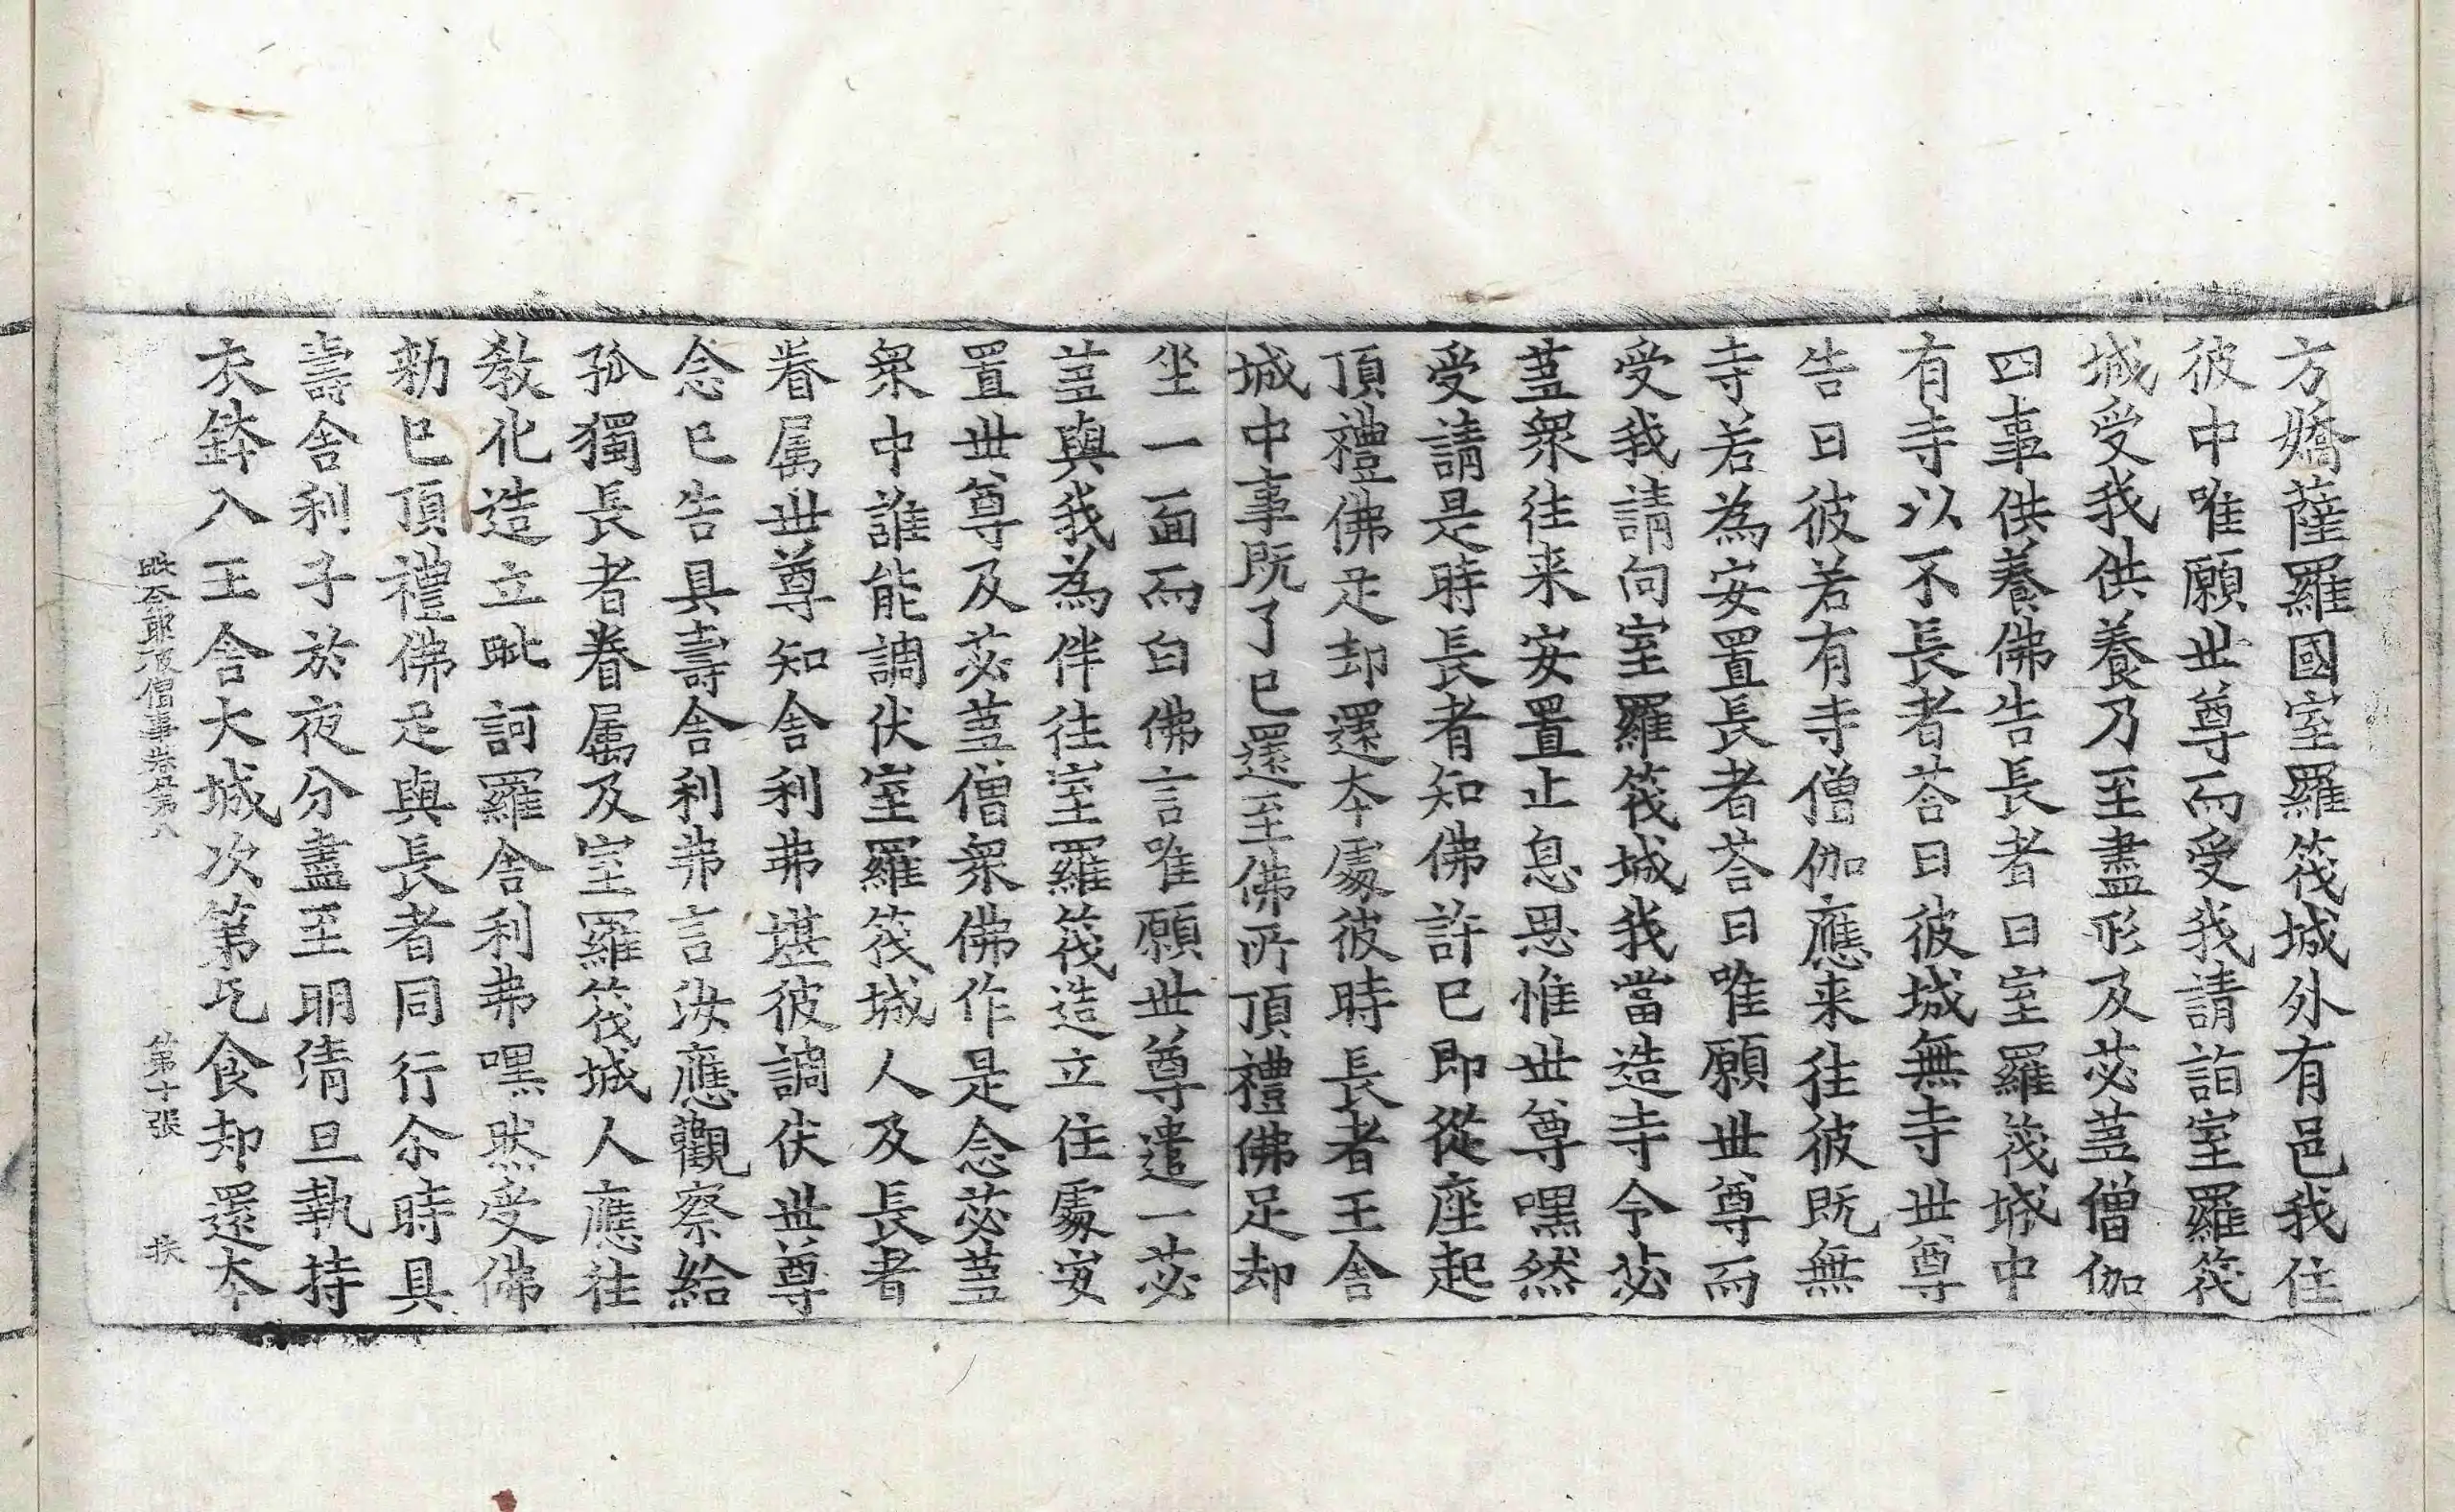 方嬌薩羅國室羅筏城外有邑我住
彼中唯願世尊而受我請詣室羅筏
城受我供養乃至盡形及苾蒭僧伽
四事供養佛告長者曰室羅筏城中
有寺以不長者荅曰彼城無寺世尊
告曰彼若有寺僧伽應来往彼既無
寺若為安置長者荅曰唯願世尊而
受我請向室羅筏城我當造寺令苾
蒭衆往来安置止息思惟世尊嘿然
受請是時長者知佛許已即從座起
頂禮佛足却還本處彼時長者王舍
城中事既了已還至佛所頂禮佛足却
坐一面而白佛言唯願世尊遣一苾
蒭與我為伴往室羅筏造立住處安
置世尊及苾蒭僧衆佛作是念苾蒭
衆中誰能調伏室羅筏城人及長者
眷属世尊知舍利弗堪彼調伏世尊
念已告具壽舍利弗言汝應觀察給
孤獨長者眷属及室羅筏城人應往
教化造立毗訶羅舍利弗嘿然受佛
勑已頂禮佛足與長者同行尒時具
壽舍利子於夜分盡至明清旦執持
衣鉢入王舍大城次第乞食却還本
毗奈耶破僧事卷第八 第十張 挾